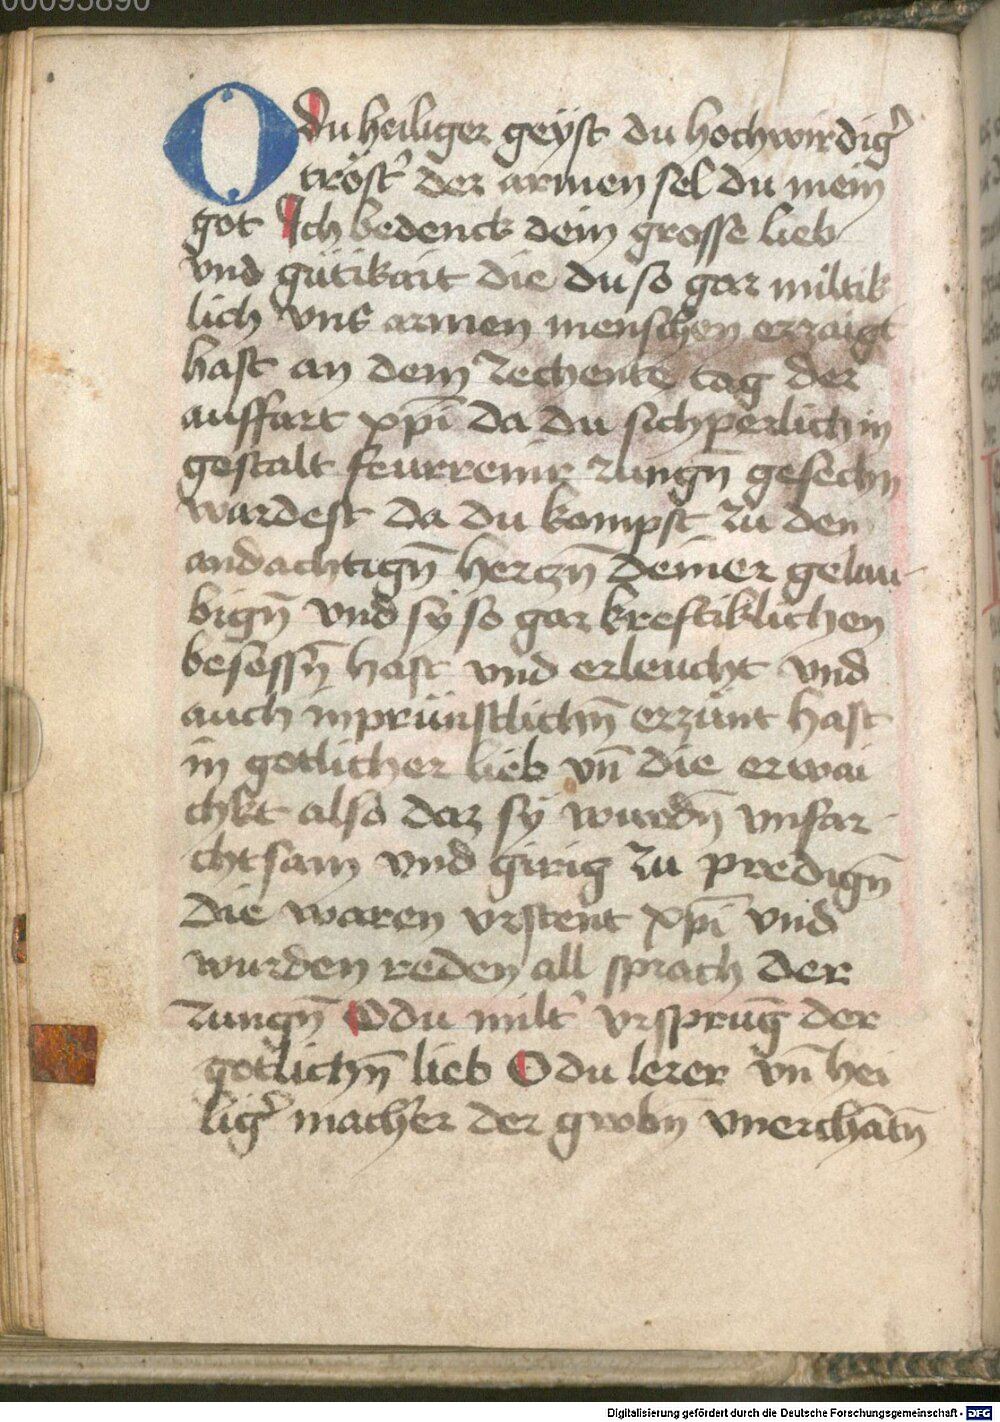 00095890
O du heiliger geÿst du hochwirdig᷑
tröst᷑ der armen sel du mein
got Ich bedenck dein grosse lieb
vnd gütikait die du so gar miltik
lich vns armen menschen erzaigt
hast an dem zechente tag der
auffart xp̄i da du sichperlich in
gestalt feurreinir zungn̄ gesechn
wardest da du kompst zu den
andachtign̄ herczn̄ deiner gelau
bign̄ vnd sÿ so gar kreftiklichen
besessn̄ hast vnd erleucht vnd
auch inprünstlichn̄ erzünt hast
in gotlicher lieb vn̄ die erwai
chkt also daz sÿ wurdn̄ vnfar
chtsam vnd girig zu predign̄
die waren vrstent xp̄i vnd
wurden reden all sprach der
zungn̄ O du milt᷑ vrsprūg der
gotlichn̄ lieb O du lerer vn̄ hei
lig᷑ macher der vnerchātn̄
Digitalisierung gefördert durch die Deutsche Forschungsgemeinschaft - DFG